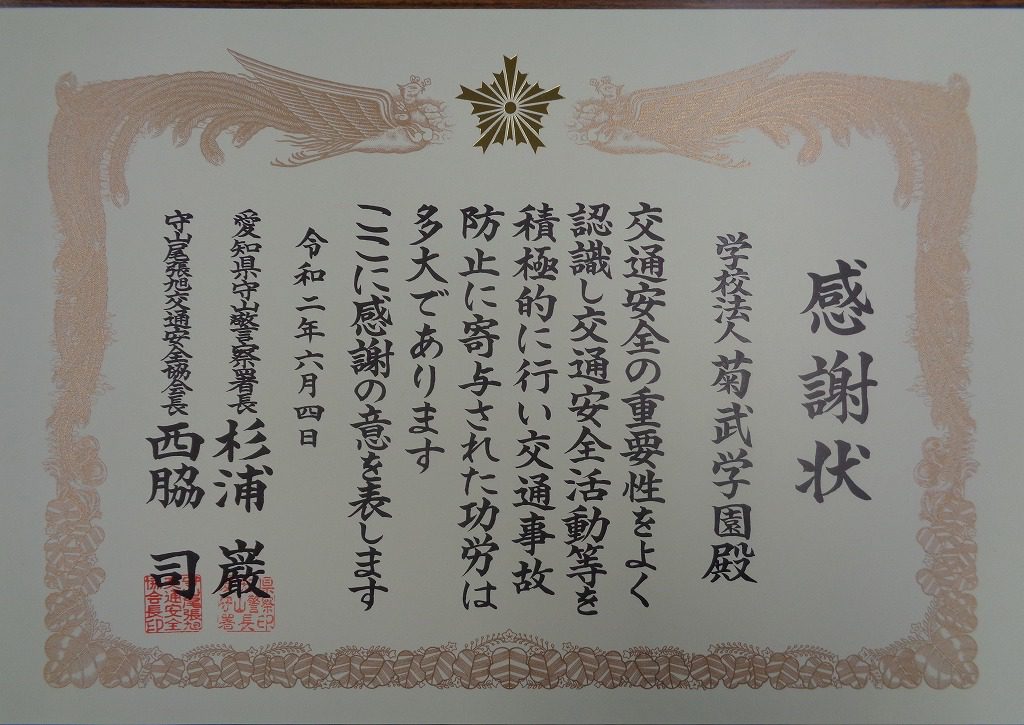 感謝状
学校法人 菊武学園殿
交通安全の重要性をよく
認識し交通安全活動等を
積極的に行い交通事故
防止に寄与された功労は
多大であります
ここに感謝の意を表します
令和二年六月四日
愛知県守山警察署長 杉浦 巌
守山尾張旭交通安全協会長 西脇 司